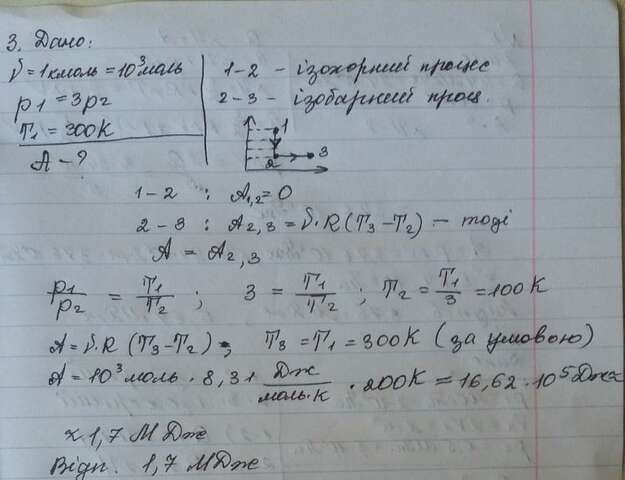 3. Дано:
ν = 1 кмоль = 10³ моль
p1 = 3p2
T1 = 300K
A - ?
1-2 - ізохорний процес
2-3 - ізобарний проц.
1
2
3
1-2 : A1,2 = 0
2-3 : A2,3 = ν.R(T3-T2) - тоді
A = A2,3
p1/p2 = T1/T2 ; 3 = T1/T2 ; T2 = T1/3 = 100K
A = ν.R (T3-T2) ; T3 = T1 = 300K (за умовою)
A = 10³ моль · 8,31 Дж/моль·К · 200K = 16,62·10⁵ Дж ≈
≈ 1,7 МДж
Відп. 1,7 МДж